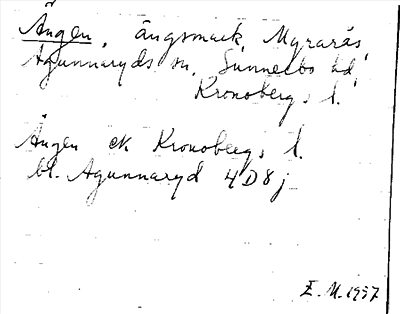 Ängen, ängsmark, Myrarås,
Agunnaryds sn, Sunnerbo hd,
Kronobergs l.
Ängen ek Kronobergs l.
bl. Agunnaryd 4D8j
E.M. 1957